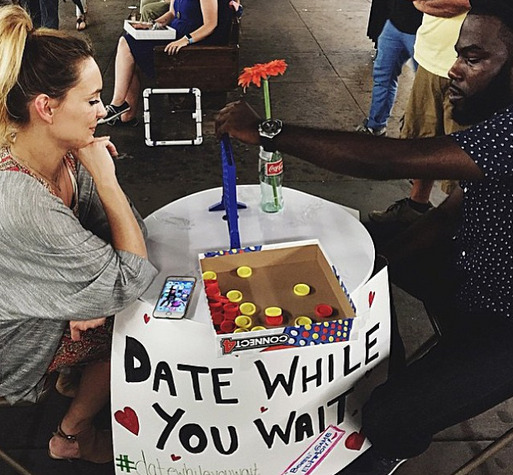 Coca-Cola
CONNECT 4
DATE WHILE
YOU WAIT
#datewhileyouwait